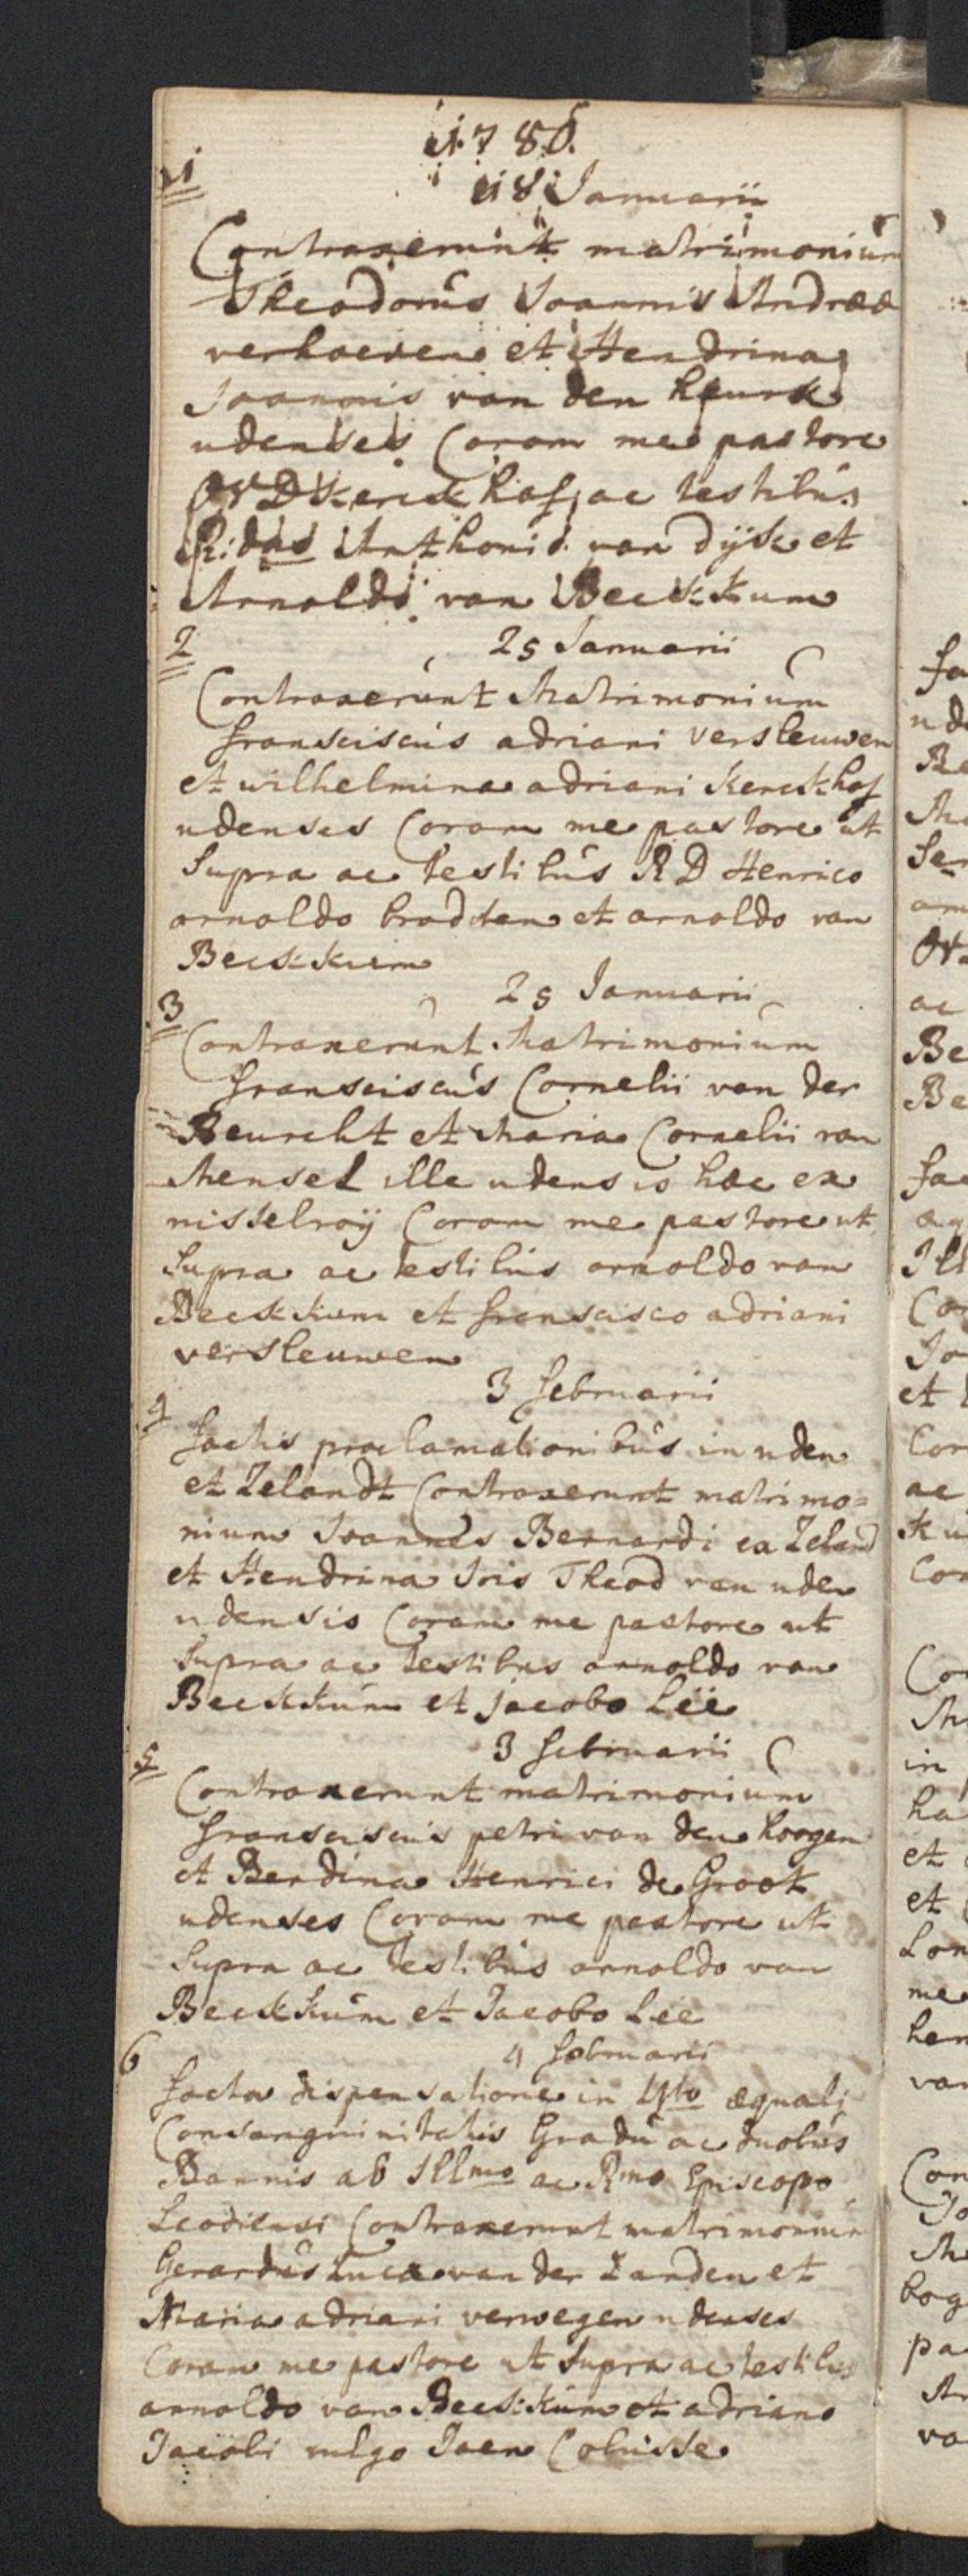 1786.
1
18 Januarii
Contraxerunt matrimonium
Theodorus Joannis Andreæ
verhoeven et Hendrina
Joannis van den heurk
udenses Coram me pastore
Kerckhof, ac testibus
Anthonio van dijk et
Arnoldo van Beeckkum
2
25 Januarii
Contraxerunt Matrimonium
fransciscus adriani versteuwen
et wilhelmina adriani Kerckhof
udenses Coram me pastore ut
Supra ac testibus R D Henrico
arnoldo et arnoldo van
Beeckkum
3
25 Januarii
Contraxerunt Matrimonium
fransciscus Cornelii van der
Beurcht et Maria Cornelii van
Mensel ille udensis hæc ex
nisselroÿ Coram me pastore ut
Supra ac testibus arnoldo van
Beeckkum et franscisco adriani
versteuwen
4
3 februarii
factis proclamationibus in uden
et Zelandt Contraxerunt matrimo=
nium Joannes Bernardi ex Zeland
et Hendrina Jois Theod van uden
udensis Coram me pastore ut
Supra ac testibus arnoldo van
Beeckkum et jacobo Lëe
5
3 februarii
Contraxerunt matrimonium
fransciscus petri van den hoogen
et Berdina Henrici de Groot
udenses Coram me pastore ut
Supra ac testibus arnoldo van
Beeckkum et Jacobo Lee
6
4 februarii
facta dispensatione in 4to æquali
Consanguinitatis Gradu ac duobus
Bannis ab Illmo ac Rmo Episcopo
Leodiensi Contraxerunt matrimonium
Gerardus Lucæ van der Landen et
Maria adriani verwegen udenses
Coram me pastore ut Supra ac testibus
arnoldo van Beeckkum et adriano
Jacobi vulgo Jaen Colnisse